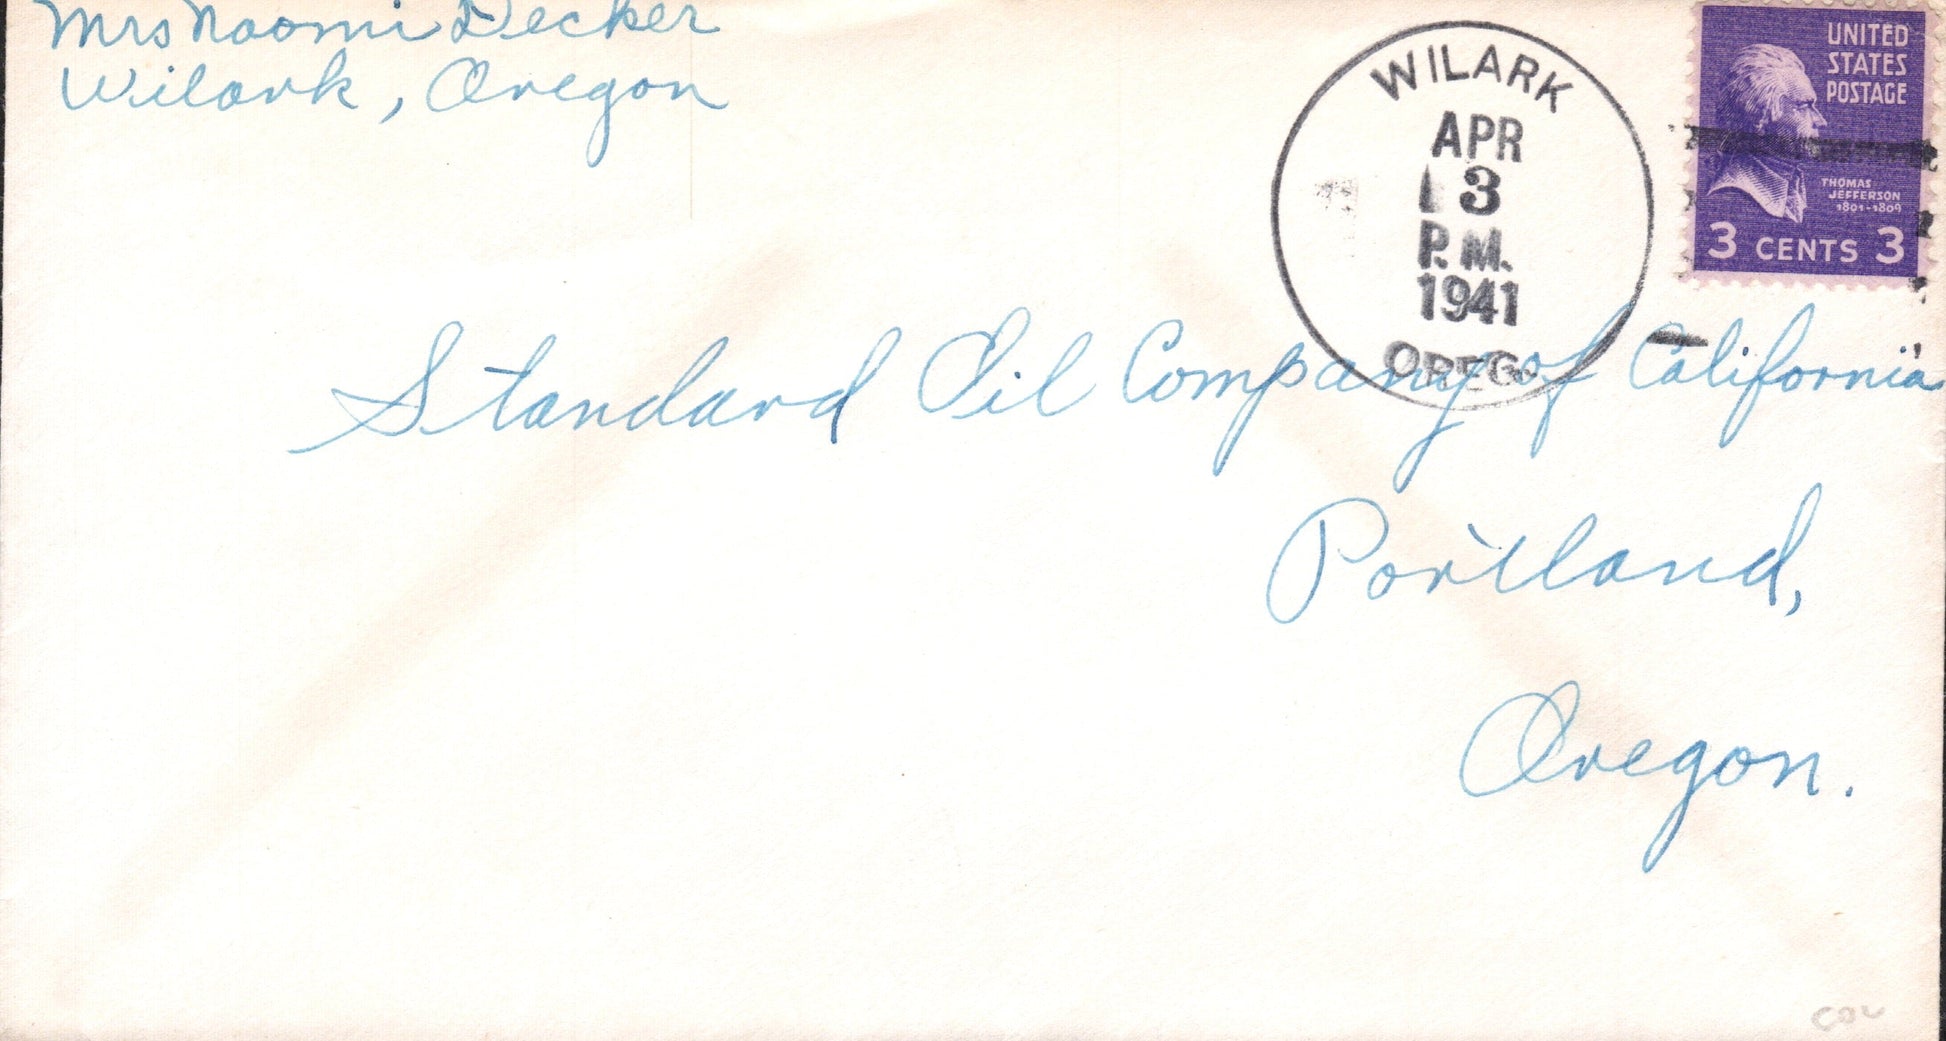 Mrs Naomi Decker
Wilark, Oregon
WILARK
APR
3
P.M.
1941
OREG.
UNITED
STATES
POSTAGE
THOMAS
JEFFERSON
1801-1809
3 CENTS 3
Standard Oil Company of California
Portland,
Oregon.